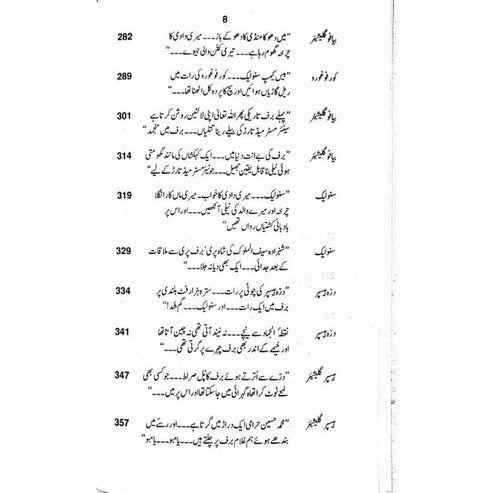 8
بیافو گلیشیئر "میں دھوکا منڈی کا دھوکے باز۔۔۔ میری دادی کا 282
چرخہ گھوم رہا ہے۔۔۔ تیری کفن والی جیوے۔۔۔"
کورفوغورو "بیس کیمپ سنو لیک۔۔۔ کورفوغورو کی رات میں 289
ریل گاڑیاں ہوائیں اور سچ کا پردہ کل اٹھنا تھا۔۔۔"
بیافو گلیشیئر "پہلے برف تاریکی پھر اللہ تعالیٰ اپنی لالٹین روشن کرتا ہے 301
سینئر مسٹر میڈ تارڑ کی پیلے رینا تتلیاں۔۔۔ برف میں منجمد"
بیافو گلیشیئر "برف کی بے انت دنیا میں۔۔۔ ایک کہکشاں کی مانند گھومتی 314
ہوئی نیلی ناقابل یقین جھیل۔۔۔ جونیئر مسٹر میڈ تارڑ کے لیے"
سنو لیک "سنو لیک۔۔۔ میری دادی کا خواب۔ میری ماں کا رانگلا 319
چرخہ اور میرے والد کی نیلی آنکھیں۔۔۔ اور اس پر
بادبانی کشتیاں رواں تھیں"
سنو لیک "شہزادہ سیف الملوک کی شاہ پری' برف پری سے ملاقات 329
کے بعد جدائی۔۔۔ ایک بھی دیا نہ جلا۔۔۔"
درّہ ہسپر "درّہ ہسپر کی چوٹی پر رات۔۔۔ سترہ ہزار فٹ بلندی پر 334
برف میں ایک رات۔۔۔ اور سنو لیک۔۔۔ گم شد!"
درّہ ہسپر نقطۂ انجماد سے نیچے۔۔۔ نہ نیند آتی تھی نہ چین آتا تھا 341
اور خیمے کے اندر بھی برف چہرے پر گرتی تھی۔۔۔"
ہسپر گلیشیئر "درّے سے اُترتے ہوئے برف کا پُل صراط۔۔۔ جو کسی بھی 347
لمحے ٹوٹ کر اتھاہ گہرائی میں جا سکتا تھا اور اس پر میں۔۔۔"
ہسپر گلیشیئر "محمد حسین حرامی ایک دراڑ میں گرتا ہے۔۔۔ اور رسّے میں 357
بندھے ہوئے ہم غلام برف پر چلتے ہیں۔۔۔ یاہو۔۔۔ یاہو"